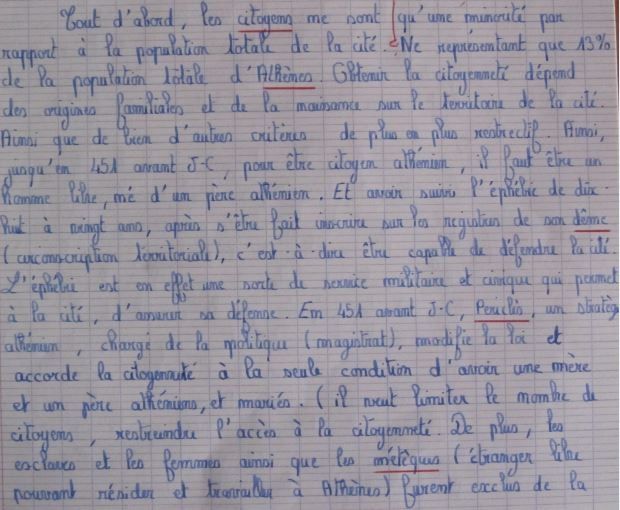 Tout d'abord, les citoyens ne sont qu'une minorité par
rapport à la population totale de la cité. Ne représentant que 13%
de la population totale d'Athènes. Obtenir la citoyenneté dépend
des origines familiales et de la naissance sur le territoire de la cité.
Ainsi que de bien d'autres critères de plus en plus restrectif. Ainsi,
jusqu'en 451 avant J-C, pour être citoyen athénien, il faut être un
homme libre, né d'un père athénien. Et avoir suivi l'éphébie de dix-
huit à vingt ans, après s'être fait inscrire sur les registres de son dême
(circonscription territoriale), c'est-à-dire être capable de défendre la cité.
L'éphébie est en effet une sorte de service militaire et civique qui permet
à la cité, d'assurer sa défense. En 451 avant J-C, Périclès, un stratèg
athénien, chargé de la politique (magistrat), modifie la loi et
accorde la citoyenneté à la seule condition d'avoir une mère
et un père athéniens, et mariés. (il veut limiter le nombre de
citoyens, restreindre l'accès à la citoyenneté. De plus, les
esclaves et les femmes ainsi que les métèques (étranger libre
pouvant résider et travailler à Athènes) furent exclus de la